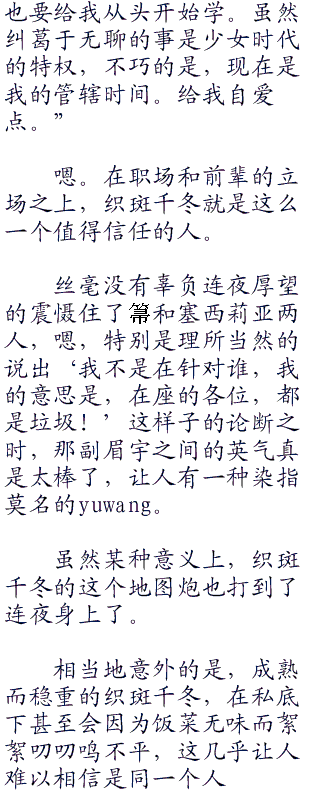 也要给我从头开始学。虽然
纠葛于无聊的事是少女时代
的特权，不巧的是，现在是
我的管辖时间。给我自爱
点。”
嗯。在职场和前辈的立
场之上，织斑千冬就是这么
一个值得信任的人。
丝毫没有辜负连夜厚望
的震慑住了箒和塞西莉亚两
人，嗯，特别是理所当然的
说出‘我不是在针对谁，我
的意思是，在座的各位，都
是垃圾！’这样子的论断之
时，那副眉宇之间的英气真
是太棒了，让人有一种染指
莫名的yuwang。
虽然某种意义上，织斑
千冬的这个地图炮也打到了
连夜身上了。
相当地意外的是，成熟
而稳重的织斑千冬，在私底
下甚至会因为饭菜无味而絮
絮叨叨鸣不平，这几乎让人
难以相信是同一个人